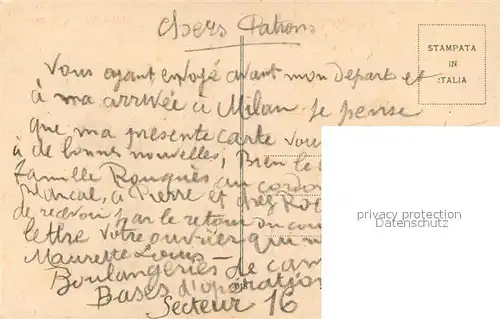 Chers Patrons
STAMPATA
IN
ITALIA
Vous ayant envoyé avant mon Depart et
à ma arrivée à Milan je pense
que ma presente carte vous
à de bonnes nouvelles, Bien le
famille Rouquès au cordon
Marcal, à Pierre et chez
de recevoir par le retour du
lettre Votre ouvrier qui
privacy protection
Datenschutz
Maurette Louis
Boulangeries de cam
Bases d'opération
Secteur 16